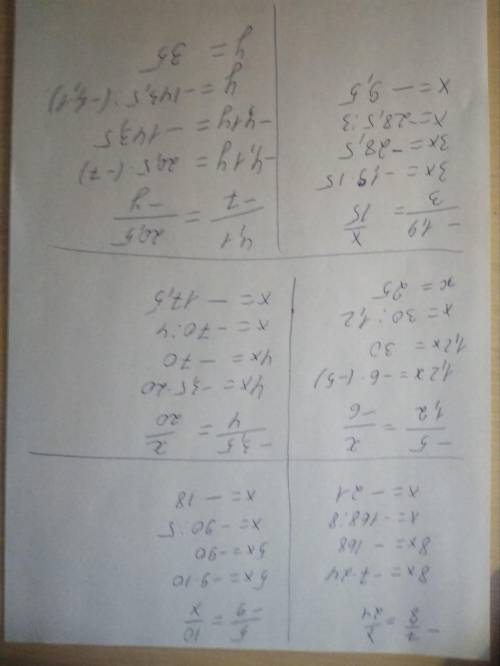 -7/8 = x/24
8x = -7·24
8x = -168
x = -168:8
x = -21
5/-9 = 10/x
5x = -9·10
5x = -90
x = -90:5
x = -18
-5/1,2 = x/-6
1,2x = -6·(-5)
1,2x = 30
x = 30:1,2
x = 25
-3,5/4 = x/20
4x = -3,5·20
4x = -70
x = -70:4
x = -17,5
-1,9/3 = x/15
3x = -1,9·15
3x = -28,5
x = -28,5:3
x = -9,5
4,1/-7 = 20,5/-y
-4,1y = 20,5·(-7)
-4,1y = -143,5
y = -143,5:(-4,1)
y = 35